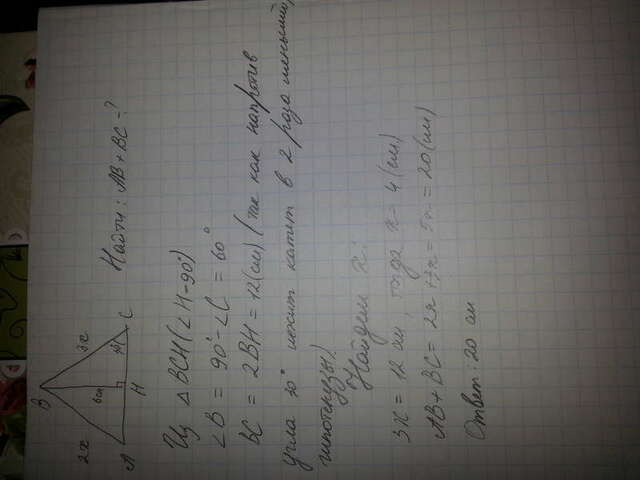 B
2x
3x
6см
30°
A
H
C
Найти: AB + BC - ?
Из △ BCH (∠H = 90°)
∠B = 90° - ∠C = 60°
BC = 2BH = 12 (см) (так как напротив
угла 30° лежит катет в 2 раза меньший
гипотенузы)
Найдем x:
3x = 12 см, тогда x = 4 (см)
AB + BC = 2x + 3x = 5x = 20 (см)
Ответ: 20 см